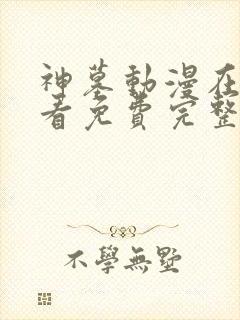 神墓動漫在
看免費完整
不學無墅